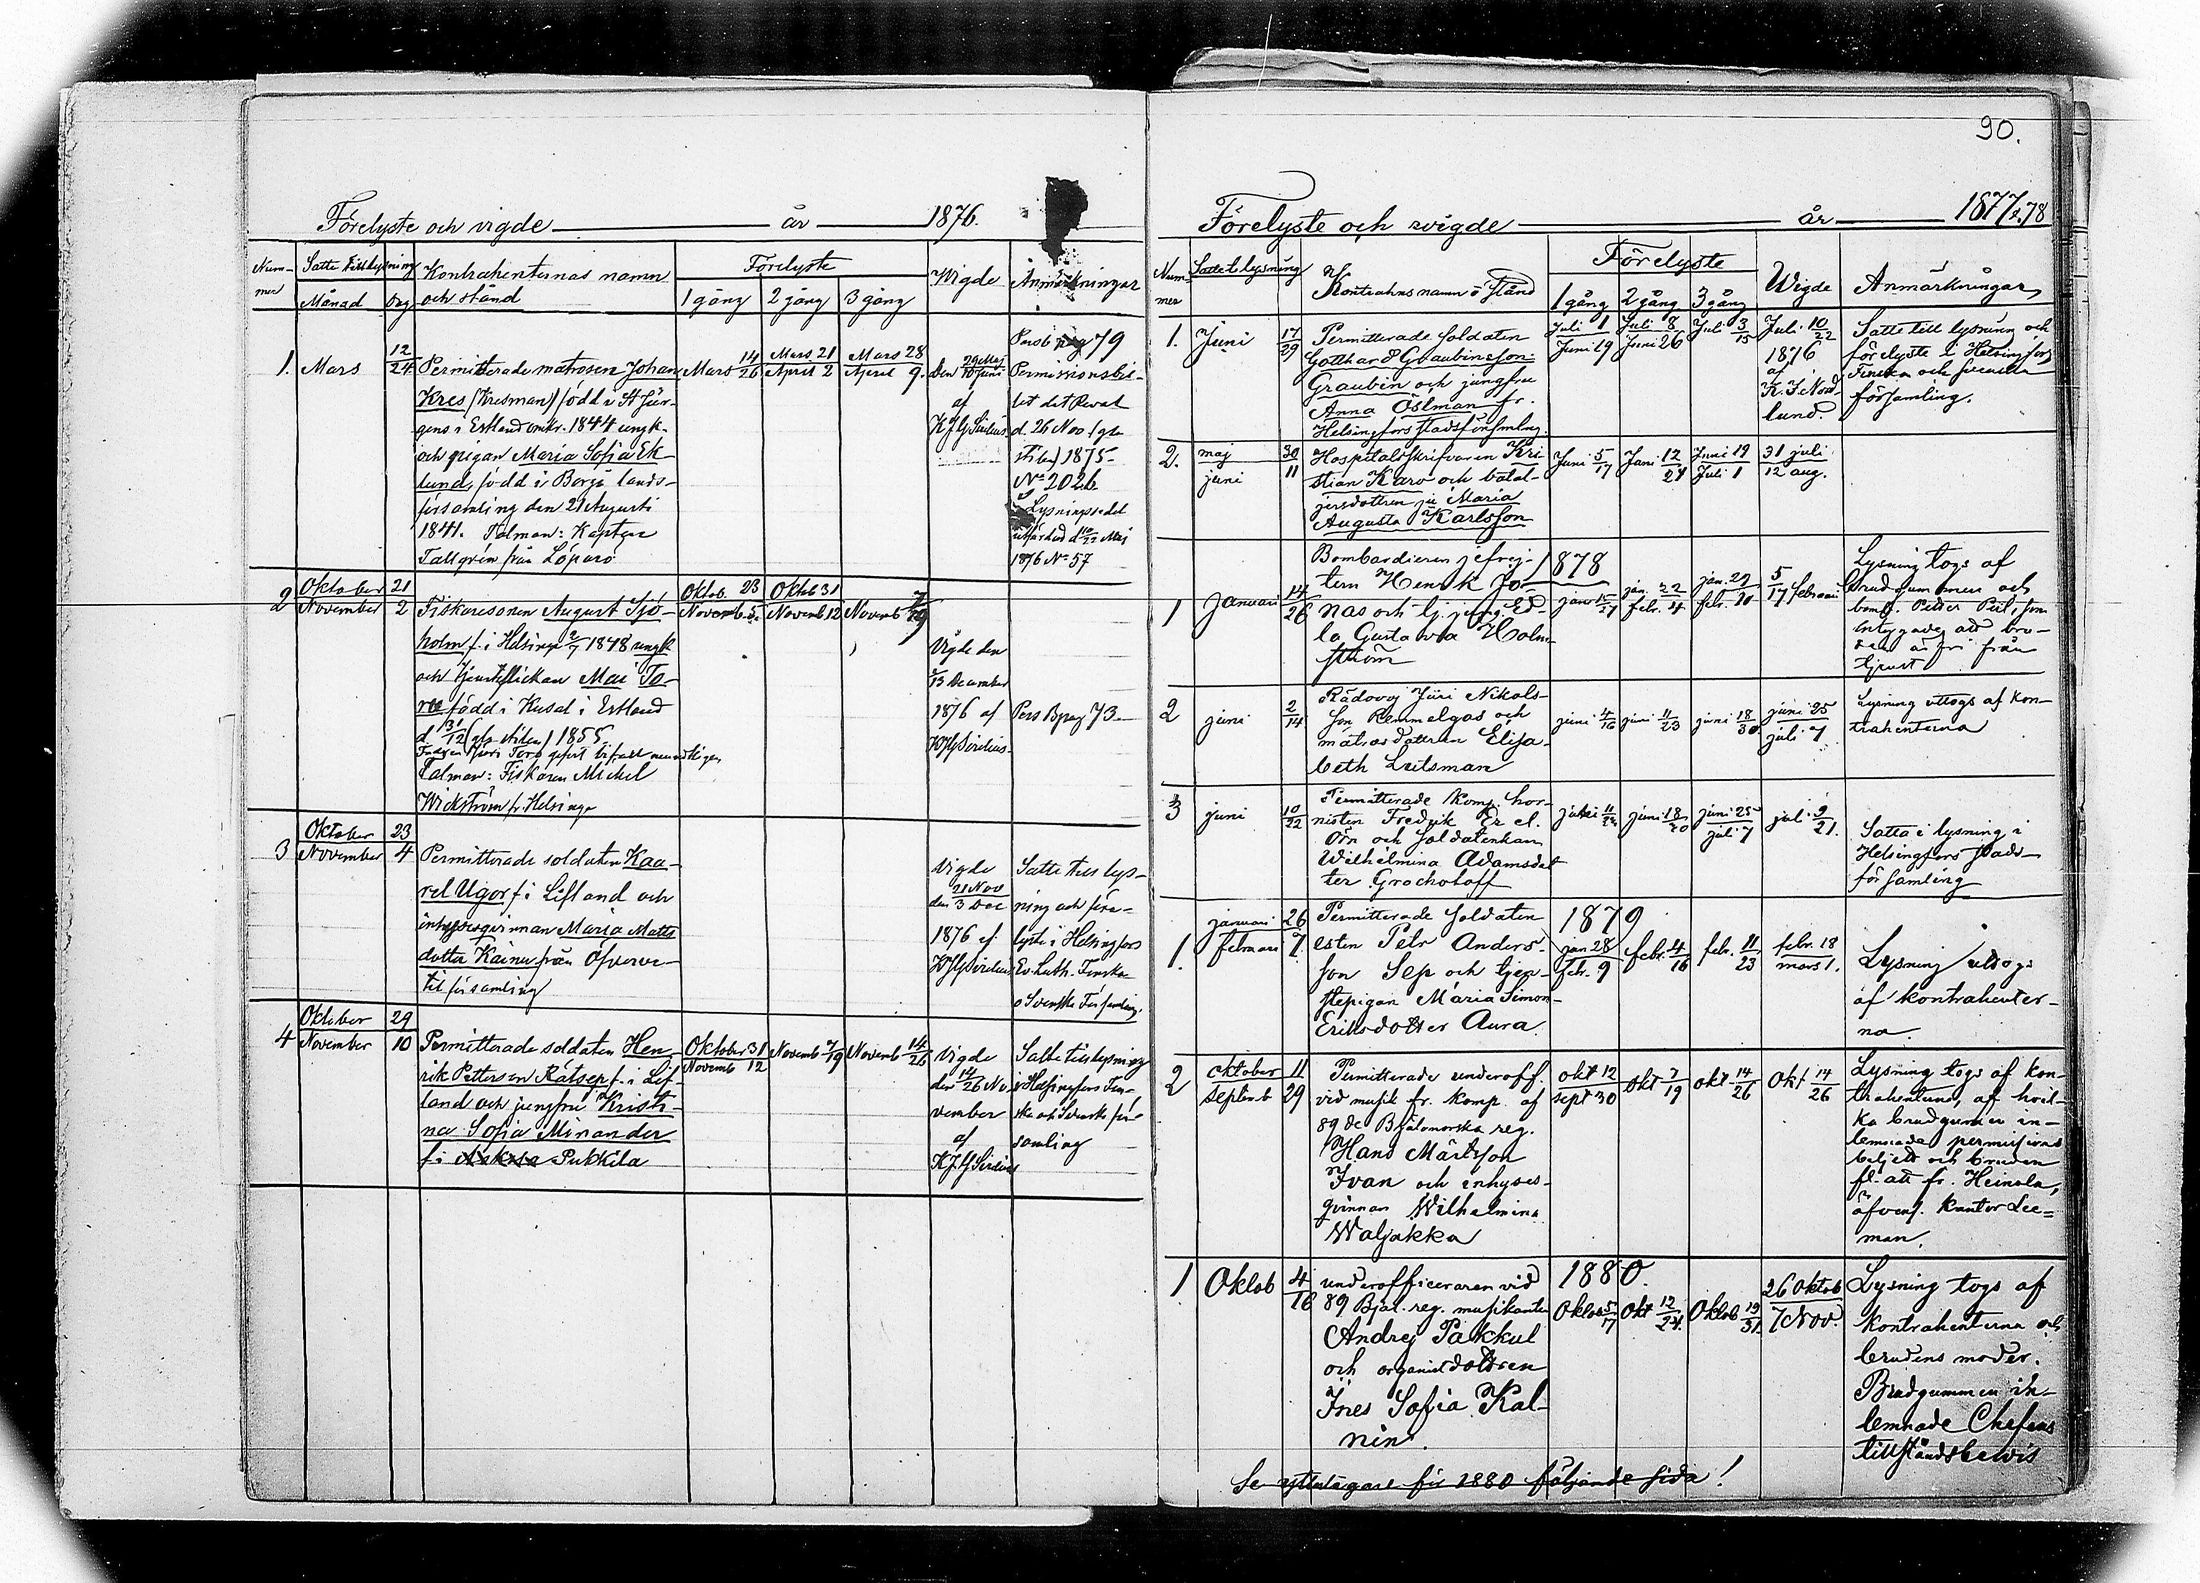 90.
Förelyste och vigde år 1876.
Num-
mer
Satte till lysning
Månad
Dag
Kontrahenternas namn
och stånd
Förelyste
1 gång
2 gång
3 gång
Wigde
Anmärkningar
1. Mars 12/24
Permitterade matrosen Johan
Kres (Kresman) född i St Jür-
gens i Estland omkr. 1844 ungk.
och pigan Maria Sofia Ek-
lund, född i Borgå lands-
församling den 21 Augusti
1841. Talman: Kapten
Tallgrén från Löparö
Mars 14/26
Mars 21
April 2
Mars 28
April 9.
den 29 Maj/10 Juni
af
K J G Sirelius
Pers B pag 79
Permissionsbil-
let dat Reval
d. 26 Nov (gla
stilen) 1875
No 2026
Lysningssedel
utfärdad d 10/22 Maj
1876 No 57
2
Oktober 21
November 2
Fiskaresonen August Sjö-
holm f. i Helsinge 2/7 1848 ungk
och tjensteflickan Mai To-
ree född i Kusal i Estland
d 31/12 (gla stilen) 1855
Talman: Fiskaren Mickel
Wickström fr. Helsinge
Oktob. 23
Novemb. 5.
Oktb 31
Novemb 12
Novemb 7/19
Vigde den
1/13 December
1876 af
K J G Sirelius
Pers B pag 73
3
Oktober 23
November 4
Permitterade soldaten Kaa-
rel Ugor f i Lifland och
inhysesqvinnan Maria Matts
dotter Kainu från Öfverve-
til församling
Vigde
den 21 Nov/3 Dec
1876 af
K J G Sirelius
Satte till lys-
ning och före-
lyste i Helsingfors
Ev. Luth. Finska
o Svenska Församling.
4
Oktober 29
November 10
Permitterade soldaten Hen-
rik Pettersson Rätsep f. i Lif-
land och jungfru Kristi-
na Sofia Minander
f. i Pukkila
Oktober 31
Novemb 12
Novemb 7/19
Novemb 14/26
Vigde
den 14/26 No
vember
af
K J G Sirelius
Satte till lysning
i Helsingfors Fin-
ska och Svenska för-
samling
Förelyste och wigde år 1877 o. 78
Num-
mer
Satte t. lysning
Kontrahns namn o stånd
Förelyste
1 gång
2 gång
3 gång
Wigde
Anmärkningar
1. Juni 17/29
Permitterade Soldaten
Gotthard Graubinsson
Graubin och jungfru
Anna Östman fr.
Helsingfors stadsförsmlng.
Juli 1
Juni 19
Juli 8
Juni 26
Juli 3/15
Juli 10/22
1876
af
K. J. Nord-
lund
Satte till lysning och
förelyste i Helsingfors
Finska och svenska
församling.
2.
maj 30
juni 11
Hospitalsskrifvaren Kri
stian Karo och batal-
jersdottern ju Maria
Augusta Karlsson
Juni 5/17
Juni 12/24
Juni 19
Juli 1
31 juli
12 aug.
1878
1 Januari 14/26
Bombardieren jefrej-
tern Henrik Jo-
nas och tj. jungf. El-
la Gustava Holm-
ström
jan 15/27
jan. 22
febr. 4
jan. 29
febr. 10
5/17 februari
Lysning togs af
brudgummen och
bomb. Petter Peil, som
intygade att bru-
den är fri från
tjenst
2 juni 2/14
Rädovoj Jüri Nikols-
son Remmelgas och
matrosdottern Elisa-
beth Leitsman
juni 4/16
juni 11/23
juni 18/30
juni 25
juli 7
Lysning uttogs af kon-
trahenterna
3 juni 10/22
Permitterade komp. hor-
nisten Fredrik Er el.
Örn och Soldatenkan
Wilhelmina Adamsdot
ter Grochotoff
juni 11/23
juni 18/30
juni 25
juli 7
juli 9/21.
Satta i lysning i
Helsingfors stads-
församling
1879
1.
januari 26
februari 7.
Permitterade Soldaten
esten Petr Anders-
son Sep och tjen-
stepigan Maria Simon-
Eriksdotter Aura.
jan 28
febr. 9
febr. 4/16
febr. 11/23
febr. 18
mars 1.
Lysning uttogs
af kontrahenter-
na.
2
oktober 11
septemb 29
Permitterade underoff.
vid musik fr. komp. af
89 de Bjälomorska reg.
Hans Märtsson
Ivan och inhyses-
qvinnan Wilhelmina
Waljakka
okt 12
sept 30
okt 7/19
okt 14/26
Okt 14/26
Lysning togs af kon-
trahenterna, af hvil-
ka brudgummen in-
lemnade permissions
biljett och bruden
fl. att. fr. Heinola,
äfvens. kantor Lee-
man.
1880.
1 Oktob 4/16
underofficeraren vid
89 Bjäl. reg. musikanten
Andrej Päkkul
och organistdottren
Ines Sofia Kal-
nin.
Oktob 5/17
Okt 12/24.
Oktob 19/31.
26 Oktob
7 Nov.
Lysning togs af
kontrahenterna och
brudens moder.
Brudgummen in-
lemnade Chefens
tillståndsbevis
Se ytterligare för 1880 följande sida!